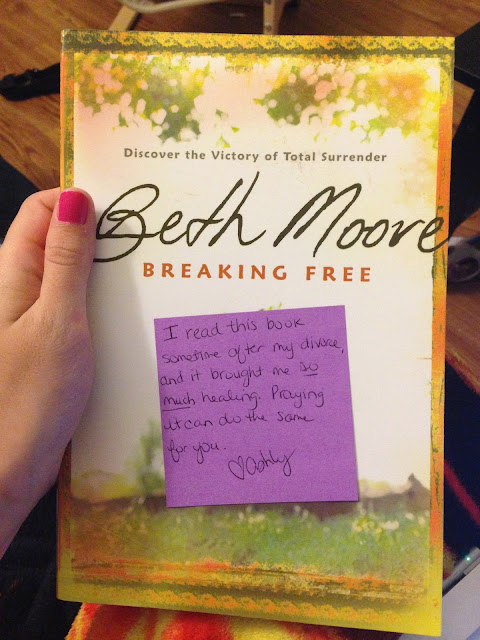 Discover the Victory of Total Surrender
Beth Moore
BREAKING FREE
I read this book
sometime after my divorce,
and it brought me so
much healing. Praying
it can do the same
for you.
♡Ashly